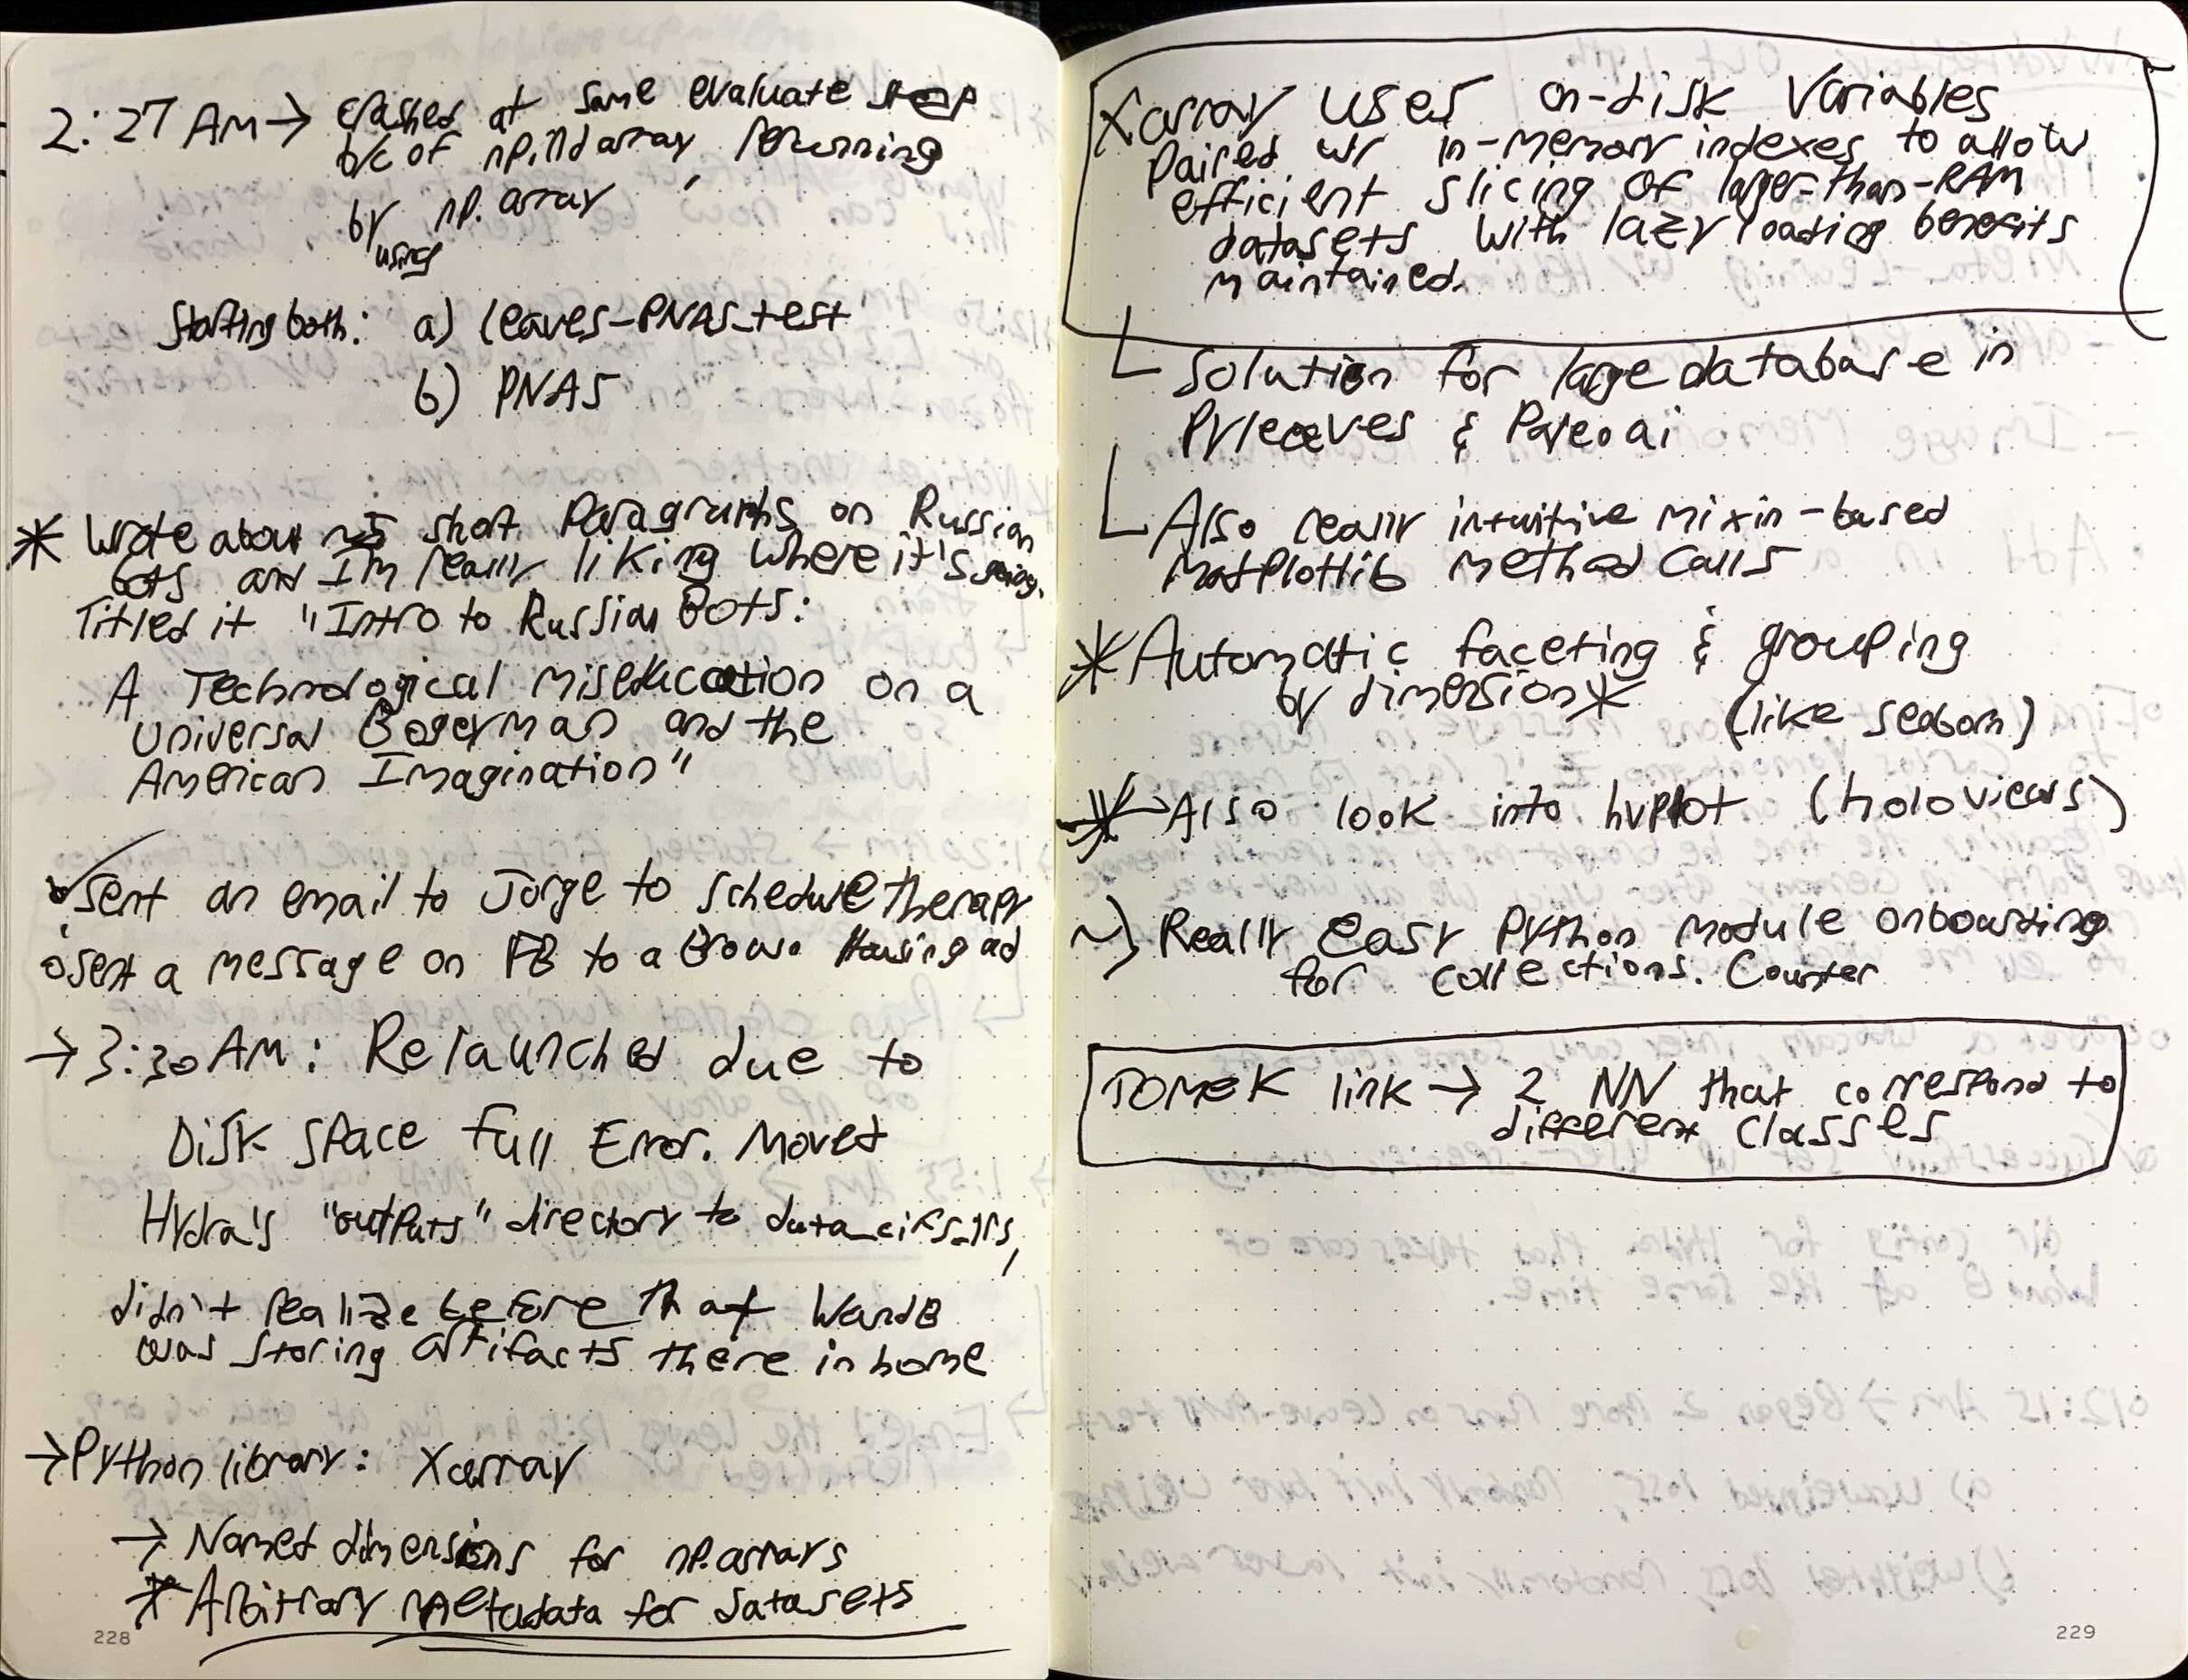 2:27 AM → crashed at same evaluate step
b/c of np.ndarray, rerunning
by using np.array
Starting both: a) leaves-PNAS_test
b) PNAS
* Wrote about ~5 short paragraphs on Russian
bots and I'm really liking where it's going.
Titled it "Intro to Russian Bots:
A Technological miseducation on a
Universal Bogeyman and the
American Imagination"
Sent an email to Jorge to schedule therapy
Sent a message on FB to a Brown Housing ad
→ 3:30 AM: Relaunched due to
Disk Space full Error. Moved
Hydra's "outputs" directory to data_cifs_lrs,
didn't realize before that WandB
was storing artifacts there in home
→ Python library: Xarray
→ Named dimensions for np.arrays
* Arbitrary metadata for datasets
228
Xarray uses on-disk variables
paired w/ in-memory indexes to allow
efficient slicing of larger-than-RAM
datasets with lazy loading benefits
maintained.
Solution for large database in
Pyleaves & Paleoai
Also really intuitive mixin-based
Matplotlib method calls
* Automatic faceting & grouping
by dimension * (like seaborn)
* → Also look into hvplot (holoviews)
~) Really easy Python module onboarding
for collections.Counter
TOMEK link → 2 NN that correspond to
different classes
229